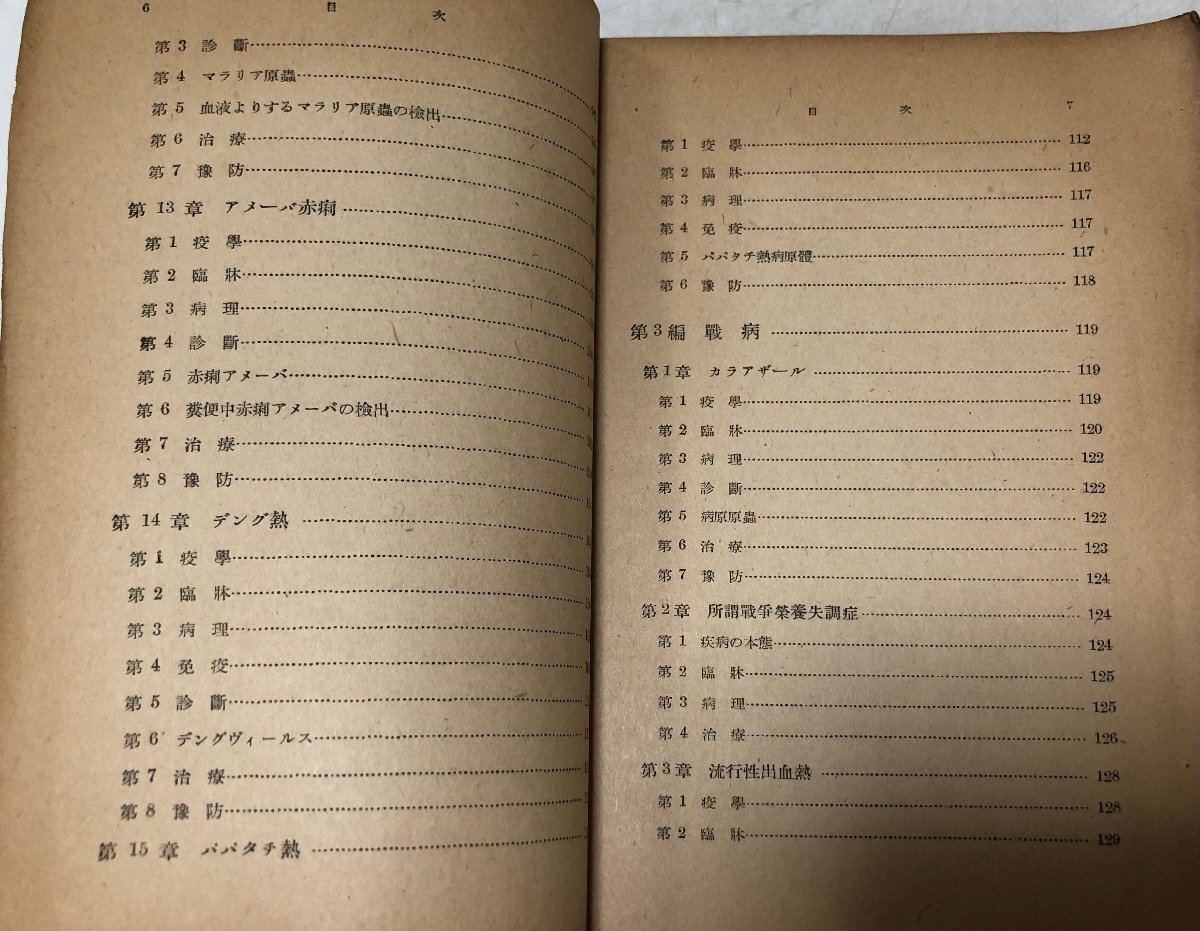 6 目次
第3 診斷
第4 マラリア原蟲
第5 血液よりするマラリア原蟲の檢出
第6 治療
第7 豫防
第13章 アメーバ赤痢
第1 疫學
第2 臨牀
第3 病理
第4 診斷
第5 赤痢アメーバ
第6 糞便中赤痢アメーバの檢出
第7 治療
第8 豫防
第14章 デング熱
第1 疫學
第2 臨牀
第3 病理
第4 免疫
第5 診斷
第6 デングヴィールス
第7 治療
第8 豫防
第15章 パパタチ熱
目次 7
第1 疫學 112
第2 臨牀 116
第3 病理 117
第4 免疫 117
第5 パパタチ熱病原體 117
第6 豫防 118
第3編 戰病 119
第1章 カラアザール 119
第1 疫學 119
第2 臨牀 120
第3 病理 122
第4 診斷 122
第5 病原原蟲 122
第6 治療 123
第7 豫防 124
第2章 所謂戰爭榮養失調症 124
第1 疾病の本態 124
第2 臨牀 125
第3 病理 125
第4 治療 126
第3章 流行性出血熱 128
第1 疫學 128
第2 臨牀 129